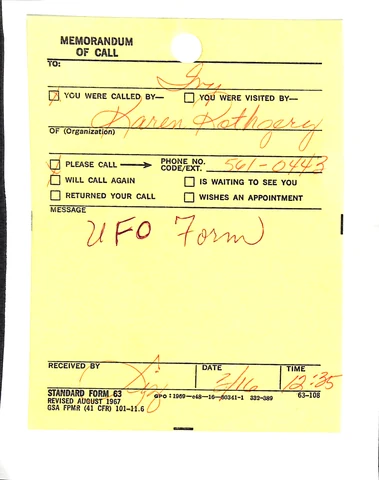 MEMORANDUM
OF CALL
TO:
Ivy
YOU WERE CALLED BY— YOU WERE VISITED BY—
Karen Kothgery
OF (Organization)
PLEASE CALL PHONE NO. CODE/EXT. 561-0443
WILL CALL AGAIN IS WAITING TO SEE YOU
RETURNED YOUR CALL WISHES AN APPOINTMENT
MESSAGE
UFO Form
RECEIVED BY DATE TIME
3/16 12:35
STANDARD FORM 63
REVISED AUGUST 1967
GSA FPMR (41 CFR) 101-11.6
GPO : 1969—c48—16—80341-1 332-389 63-108